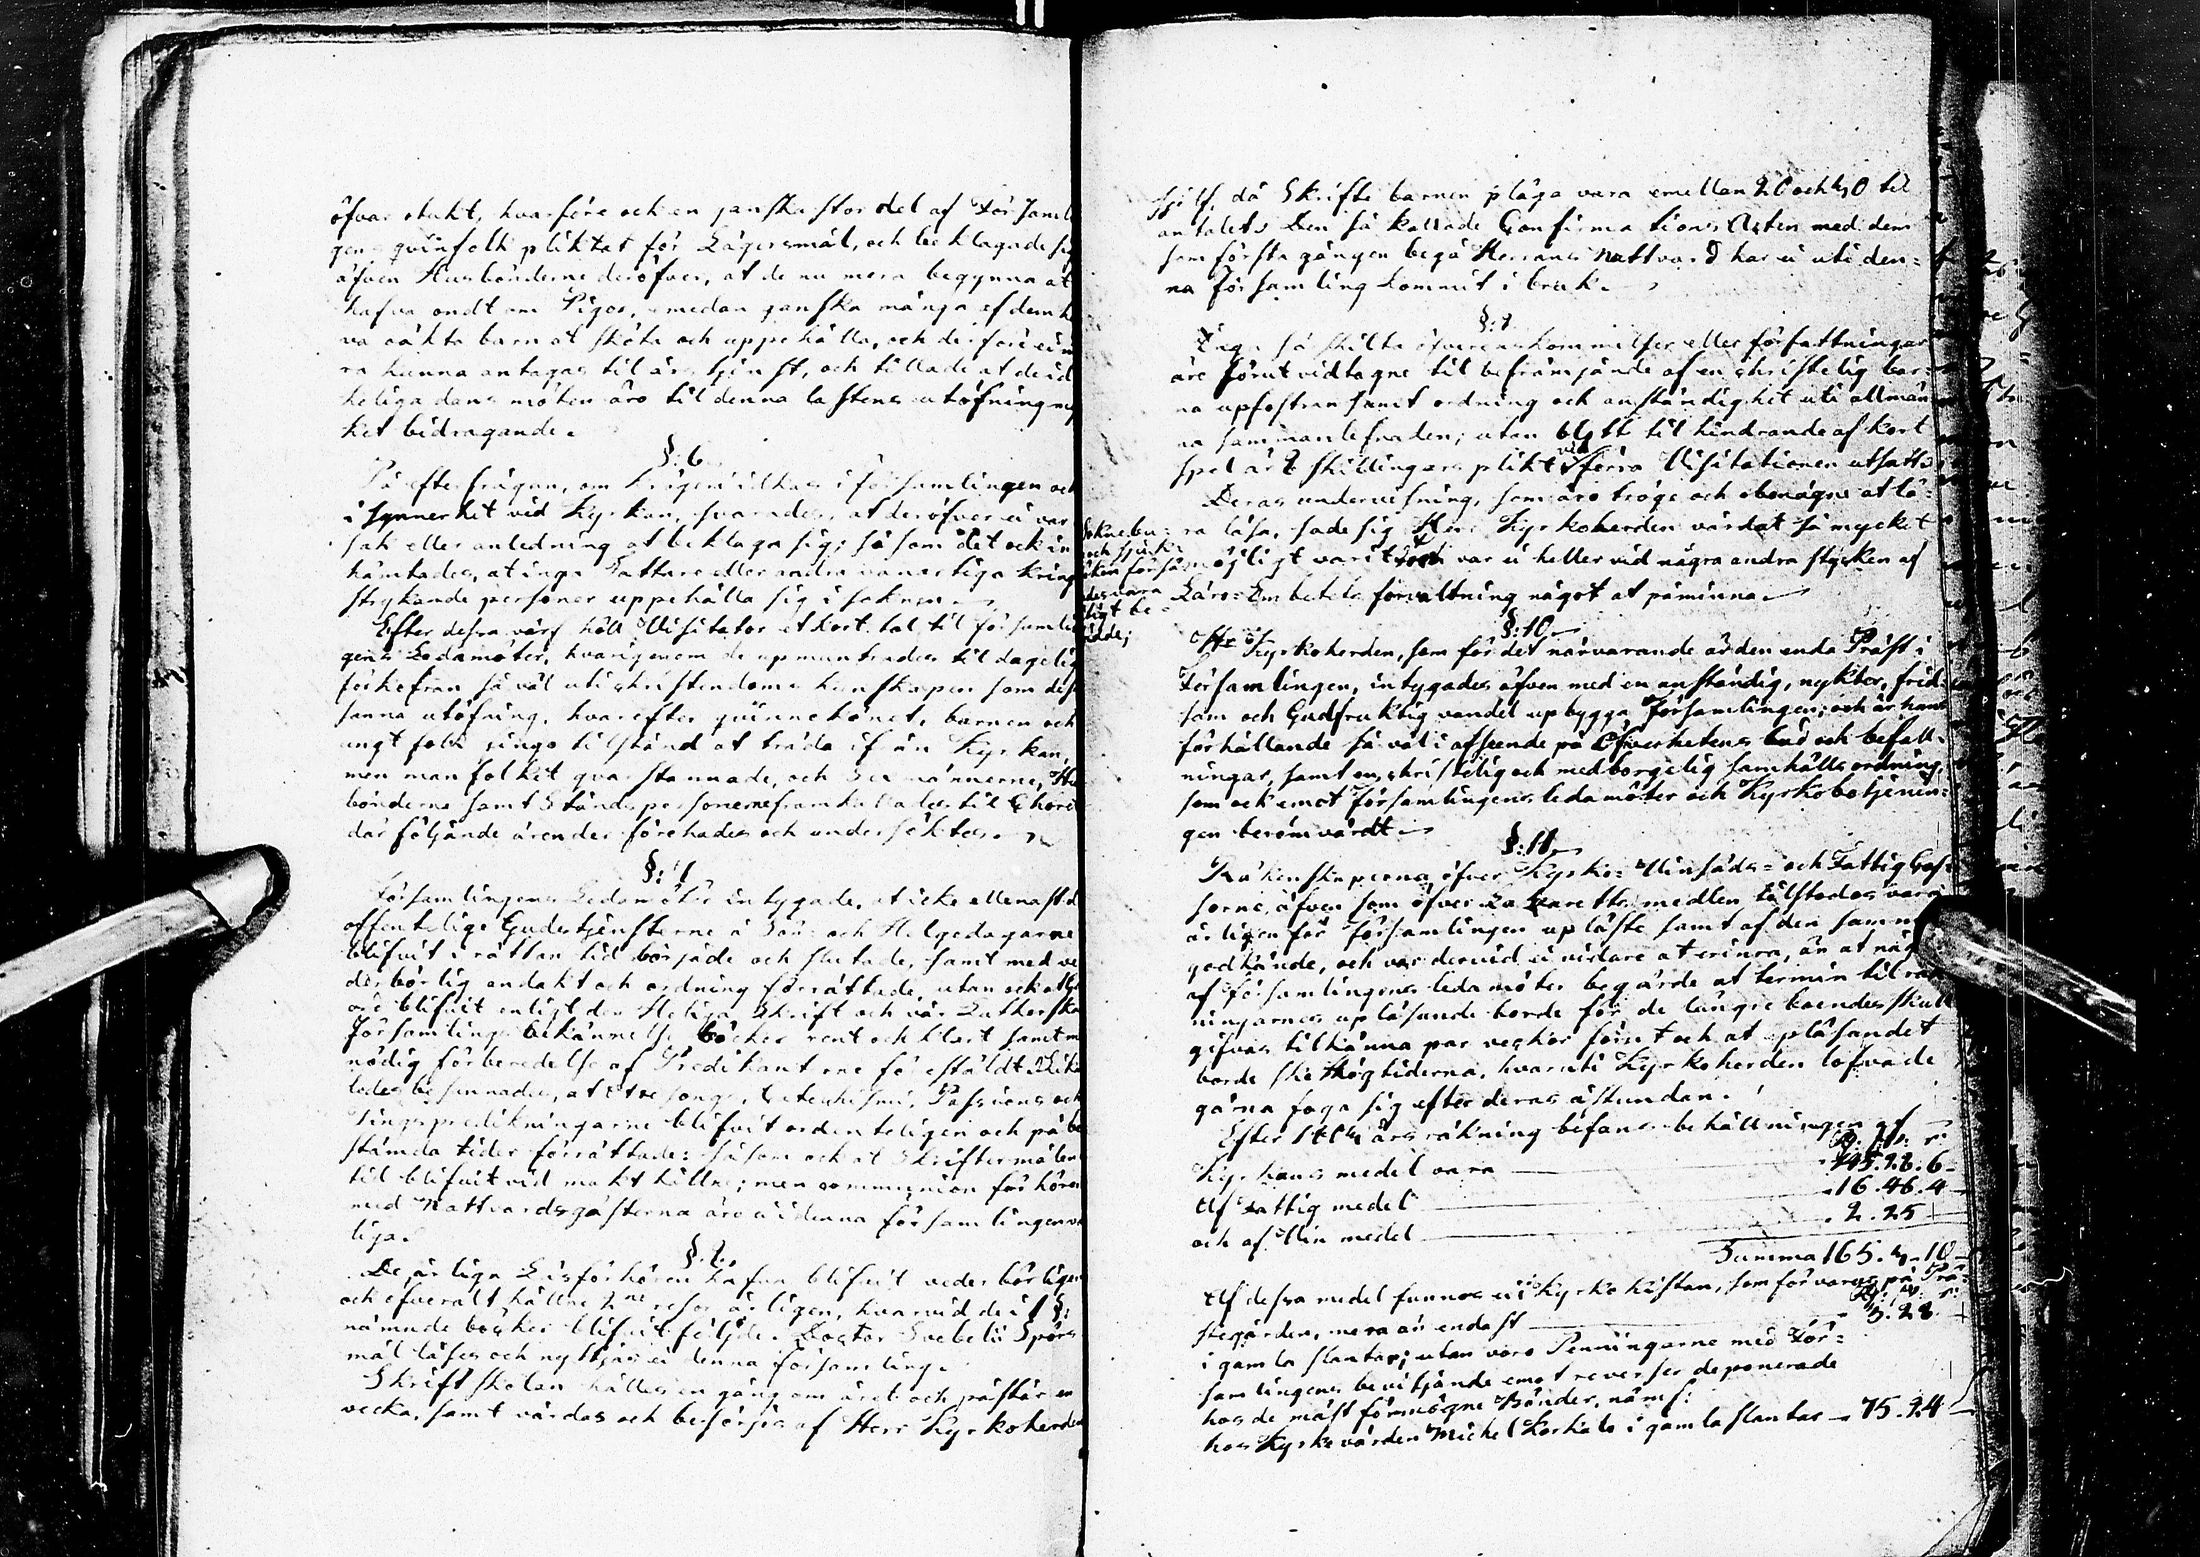 öfvar otukt, hvarföre ock en ganska stor del af Församli
gens qvinfolk pliktat för Lägersmål, och beklagade sig
äfven Husbönderne deröfver, at de nu mera begynna at
hafva ondt om Pigor, emedan ganska många af dem h
va oäkta barn at sköta och uppehålla, och derföre ei
ra kunna antagas til års tjenst, och tillade at de id
keliga dans möten äro til denna lastens utöfning my
ket bidragande.
§: 6.
På efterfrågan, om Krögeri idkas i församlingen och
i synnerhet vid Kyrkan, svarades, at deröfver ei var
sak eller anledning at beklaga sig; så som det ock in
hämtades, at inga Tattare eller andra vanartiga kring
strykande personer uppehålla sig i soknen.
Efter dessa värf höll Visitator et kort tal til församlin
gens Ledamöter, hvarigenom de upmuntrades til dagelig
förkofran så väl uti christendoms kunskapen som dess
sanna utöfning, hvarefter qvinnekönet, barnen och
ungt folk finge tilstånd at träda ifrån Kyrkan,
men manfolket qvarstannade, och Sex männerne, Hus
bönderne samt Ståndspersonerne framkallades til Choret
där följande ärender förehades och undersöktes.
§: 7
Församlingens Ledamöter intygade, at icke allenast d
offentelige Gudstjensterne å Sön- och Helgedagarne
blifvit i rättan tid började och slutade, samt med ve
derbörlig andakt och ordning förrättade, utan ock at G
ord blifvit enligt den Heliga Skrift och vår Lutherska
Församlings bekännelse böcker rent och klart samt m
nödig förberedelse af Predikanterne föreställdt. Lika
ledes besannades, at Ottesongs, Catechismi, Passions och
Tingspredikningarne blifvit ordenteligen och på be
stämda tider förrättade: såsom ock at Skriftermålen
tid blifvit vid makt hållne; men communion förhören
med Nattvardsgästerna äro ei i denna församlingen va
liga.
§. 8.
De årliga Läsförhören hafva blifvit vederbörligen
och öfveralt hållne 2ne resor årligen, hvarvid de i 1 §:
nämnde böcker blifvit följde. Doctor Svebelii Spörs
mål läses och nyttjas ei i denna församling.
Skriftskolan hålles en gång om året och påstår en
vecka, samt vårdas och besörjes af Herr Kyrkoherden
sjelf, då Skrifte barnen pläga vara emellan 20 och 40 til
antalet. Den så kallade Confirmations Acten med dem
som första gången begå Herrans Nattvard har ei uti den=
na Församling kommit i bruk.
§: 9.
Inga särskilta öfverenskommelser eller författningar
äro förut vidtagne til befrämjande af en christelig bar=
na upfostran samt ordning och anständighet uti allmän=
na sammanlefnaden; utan blott til hindrande af kort
spel är 2 skillingars plikt vid förra Visitationen utsatt.
Deras undervisning, som äro tröge och obenägne at lä=
ra läsa, sade sig Herr Kyrkoherden vårdat så mycket
möjligt varit och var ei heller vid några andra stycken af
Läro-Embetets förvaltning något at påminna.
Sokne bu=
§: 10.
Hr Kyrkoherden, som för det närvarande är den enda Präst i
Församlingen, intygades äfven med en anständig, nykter, frid=
sam och Gudfruktig vandel upbygga Församlingen; och är hans
förhållande så väl i afseende på Öfverhetens bud och befall=
ningar, samt en christelig och medborgerlig samhälls ordning,
som ock emot Församlingens ledamöter och Kyrkobetjenin=
gen berömvärdt.
§: 11.
Räkenskaperna öfver Kyrko= Vinsäds= och Fattig Cas=
sorne, äfven som öfver Lazaretts medlen tilstodos vara
årligen för församlingen upläste samt af den samma
godkände, och var dervid ei vidare at erinra, än at någ
af församlingens ledamöter begärde at termin til räk
ningarnes upläsande borde för de längre boendes skull
gifvas tilkänna par veckor förut och at upläsandet
borde ske Högtiderna, hvaruti Kyrkoherden lofvade
gärna foga sig efter deras åstundan.
Efter 1804 års räkning befans behållningen af
R: sk: r:
Kyrkans medel vara — 145.28.6-
Af Fattig medel — 16.46.4-
och af Vin medel — 2.25
Summa 165.4.10-
Af dessa medel funnos ei i Kyrko kistan, som förvaras på Prä=
R: sk: r:
stegården, mera än endast — 5.28.
i gamla slantar; utan voro Penningarne med För=
samlingens bevitjände emot reverser deponerade
hos de mäst förmögne Bönder, nämf:
hos Kyrkovärden Michel Korkalo i gamla slantar — 75.24